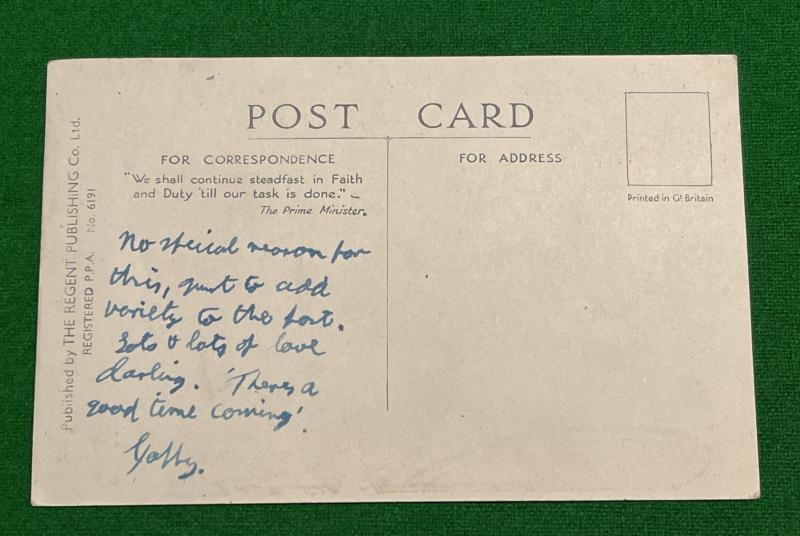 POST CARD
FOR CORRESPONDENCE
"We shall continue steadfast in Faith
and Duty 'till our task is done." –
The Prime Minister.
FOR ADDRESS
Printed in Gt. Britain
Published by THE REGENT PUBLISHING Co. Ltd.
REGISTERED P.P.A. No. 6191
No special reason for
this, just to add
variety to the post.
Lots & lots of love
darling. 'There's a
good time coming'.